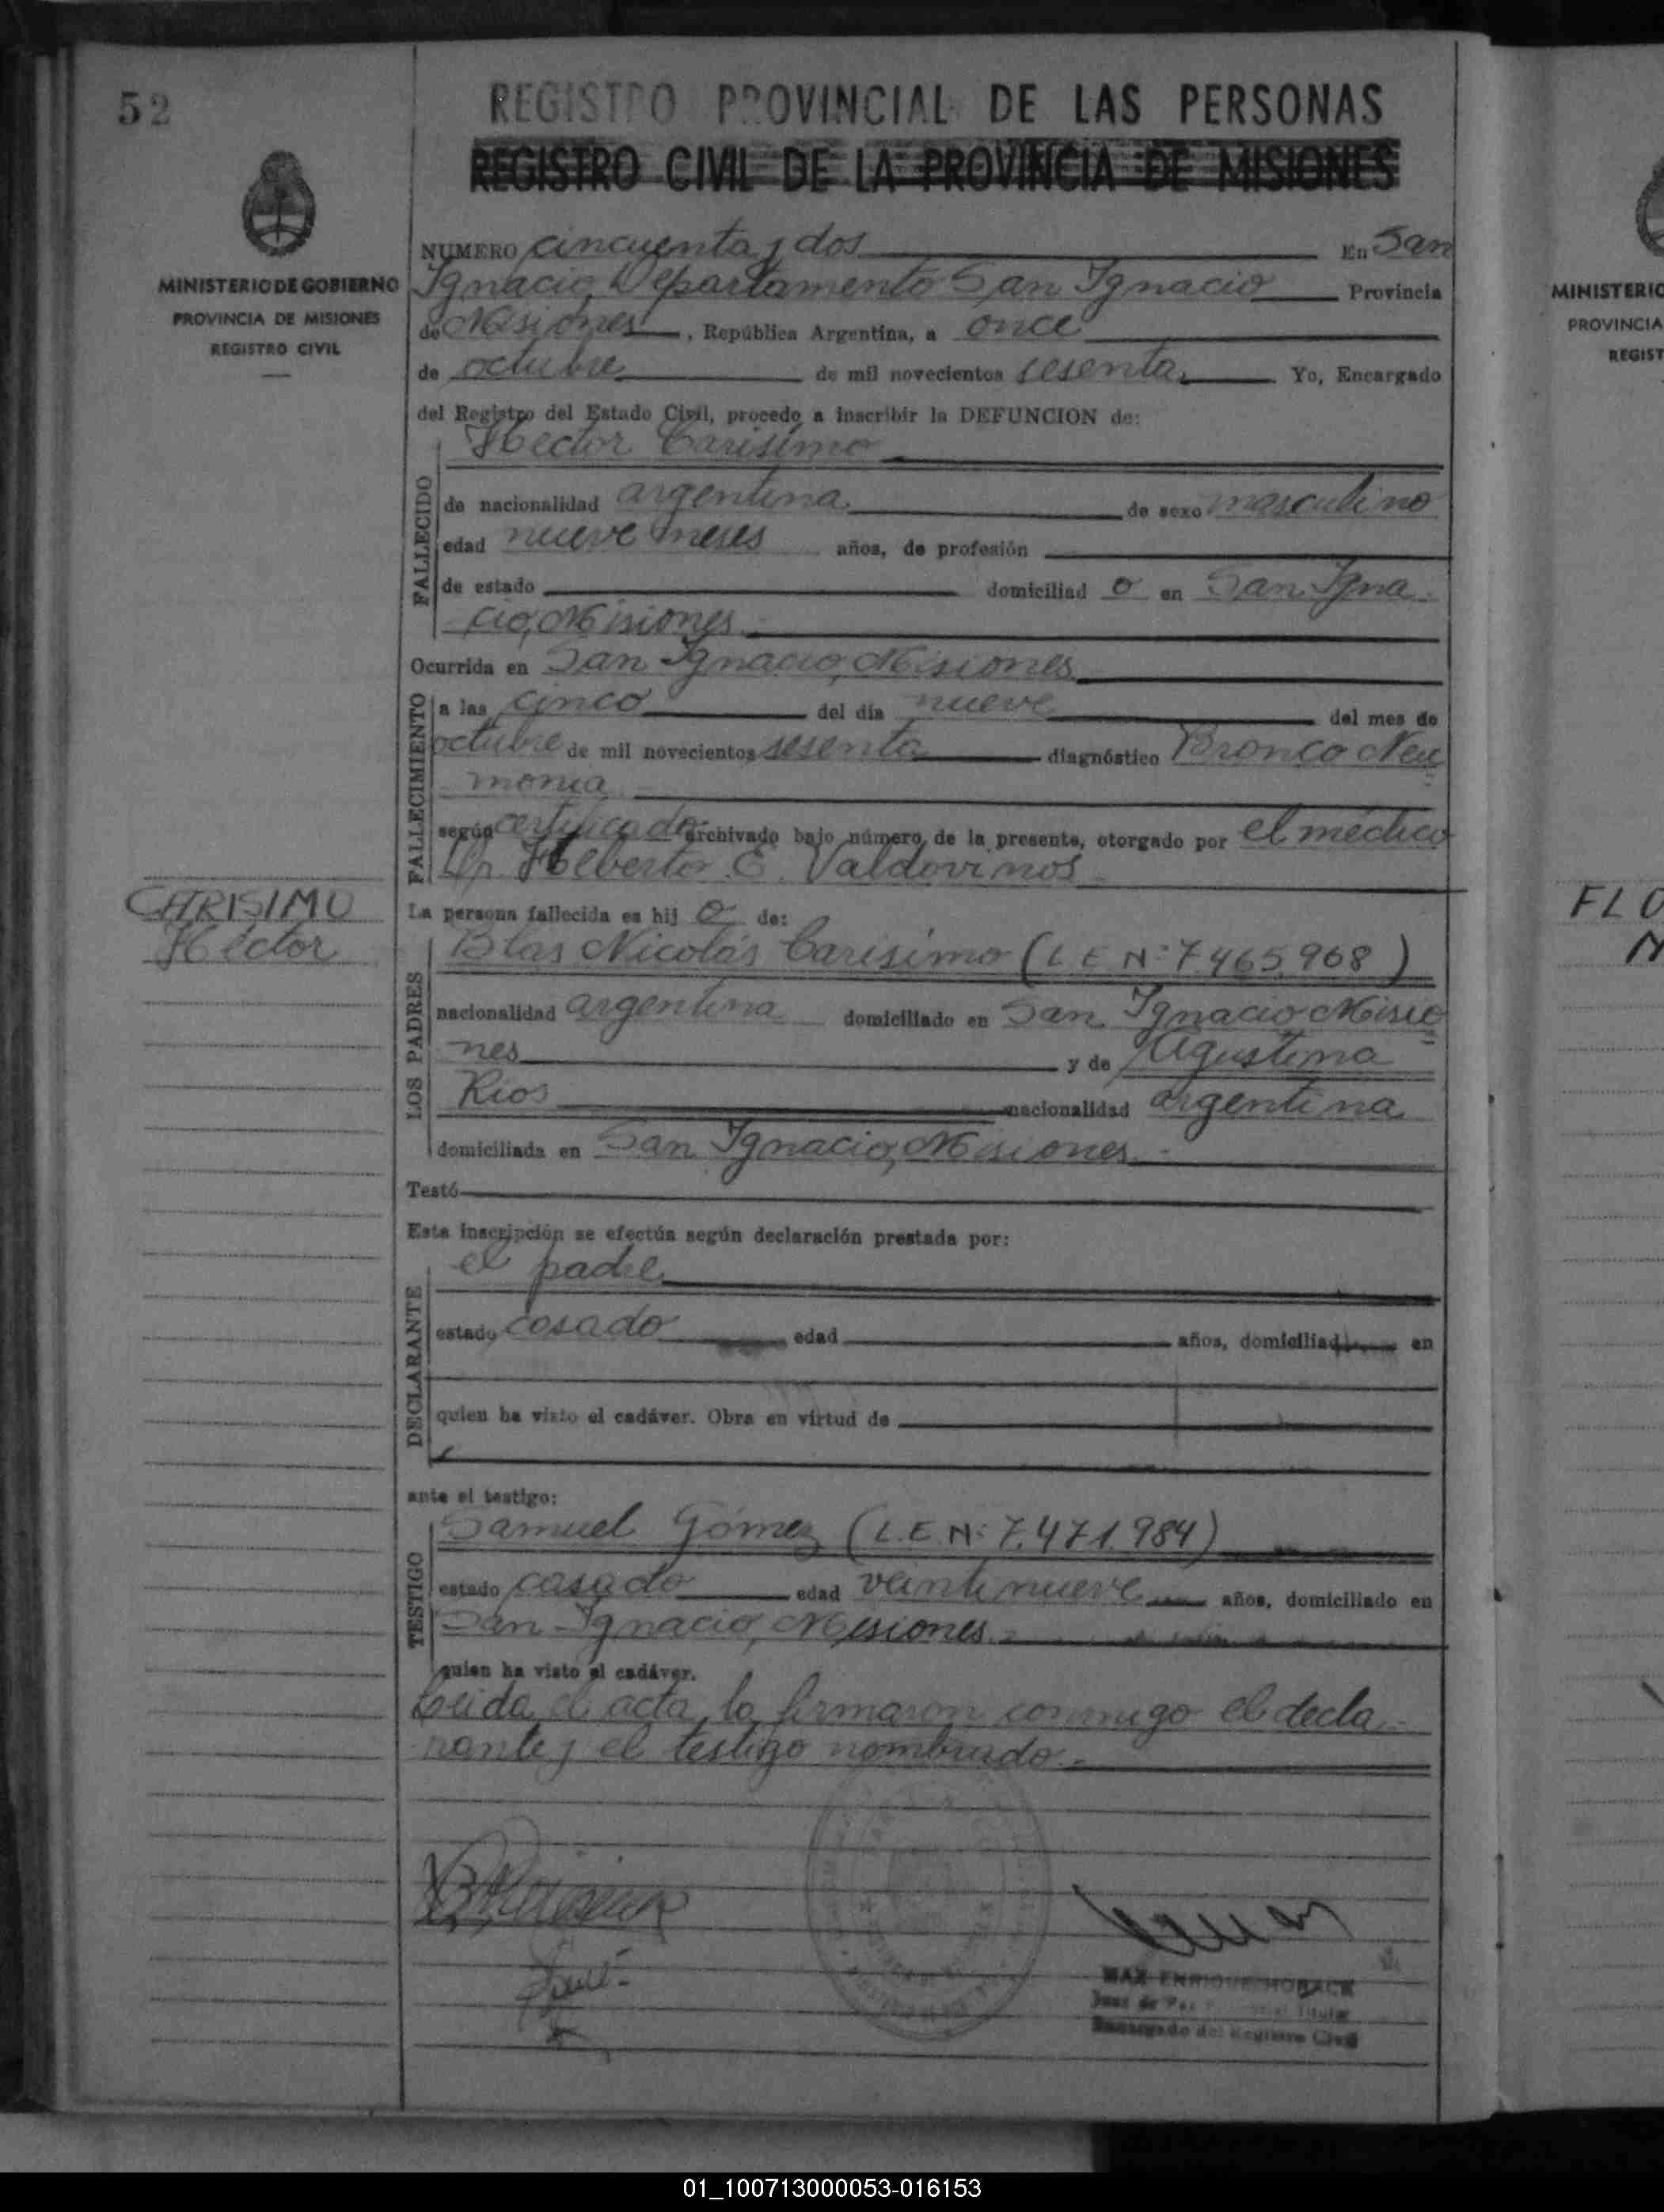 52
REGISTRO PROVINCIAL DE LAS PERSONAS
REGISTRO CIVIL DE LA PROVINCIA DE MISIONES
MINISTERIO DE GOBIERNO
PROVINCIA DE MISIONES
REGISTRO CIVIL
NUMERO cincuenta y dos En San
Ignacio, Departamento San Ignacio Provincia
de Misiones, República Argentina, a once
de octubre de mil novecientos sesenta Yo, Encargado
del Registro del Estado Civil, procedo a inscribir la DEFUNCION de:
Hector Carisimo
FALLECIDO
de nacionalidad argentina de sexo masculino
edad nueve meses años, de profesión
de estado domiciliad o en San Igna
cio, Misiones
Ocurrida en San Ignacio, Misiones
FALLECIMIENTO
a las cinco del día nueve del mes de
octubre de mil novecientos sesenta diagnóstico Bronco Neu
monia
según certificado archivado bajo número de la presente, otorgado por el médico
Dr. Helberto E. Valdovinos
CARISIMO
Hector
La persona fallecida es hij o de:
LOS PADRES
Blas Nicolás Carisimo (L E Nº 7.465.968)
nacionalidad argentina domiciliado en San Ignacio Misio
nes y de Agustina
Rios nacionalidad argentina
domiciliada en San Ignacio, Misiones.-
Testó
Esta inscripción se efectúa según declaración prestada por:
DECLARANTE
el padre
estado casado edad años, domiciliad en
quien ha visto el cadáver. Obra en virtud de
ante el testigo:
TESTIGO
Samuel Gómez (L.E. Nº 7.471.984)
estado casado edad veintinueve años, domiciliado en
San Ignacio, Misiones.-
quien ha visto el cadáver.
Leida el acta, la firmaron conmigo el decla-
rante y el testigo nombrado.-
MAX ENRIQUE HORACK
Juez de Paz Titular
Encargado del Registro Civil
MINISTERIO
PROVINCIA
REGIST
FLO
01_100713000053-016153